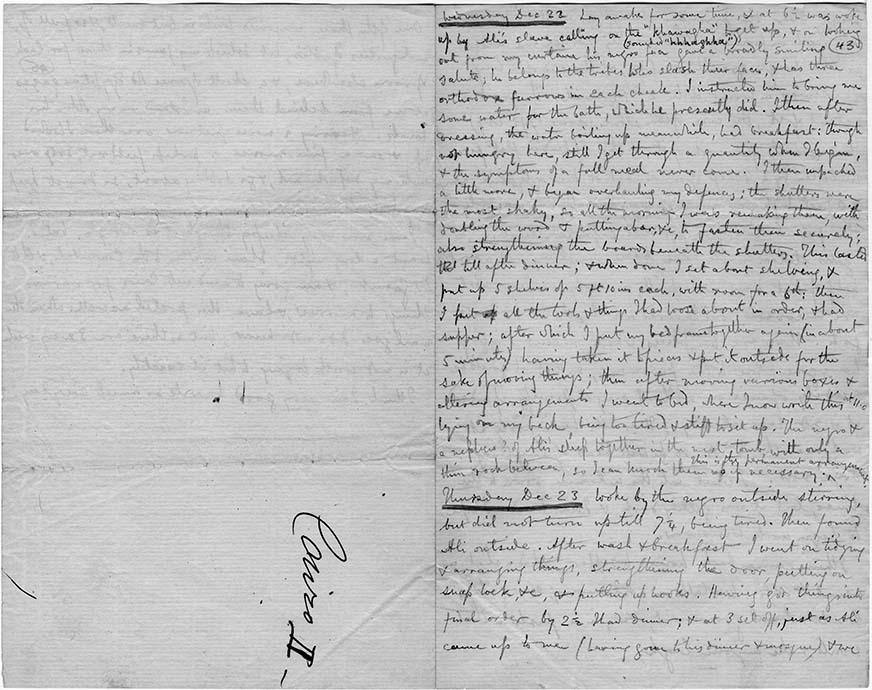 Wednesday Dec 22 Lay awake for some time, & at 6½ was woke
up by Ali's slave calling on the "khawagha" to get up, & on looking
(sounded "khhaghha")
(43)
out from my curtain his negro face gave a broadly smiling
salute; he belongs to the tribes who slash their faces, & has three
orthodox furrows in each cheek. I instructed him to bring me
some water for the bath, which he presently did. I then after
dressing, the water boiling up meanwhile, had breakfast: though
not hungry here, still I get through a quantity when I begin,
& the symptoms of a full meal never come. I then unpacked
a little more, & began overhauling my defences; the shutters were
the most shaky, so all the morning I was remaking them, with
doubling the wood & putting a bar, &c, to fasten them securely;
also strengthening the boards beneath the shutters. This lasted
till after dinner; & when done I set about shelving, &
put up 5 shelves of 5 ft 10 ins each, with room for a 6th; then
I put all the tools & things I had loose about in order, & had
supper; after which I put my bed frame together again (in about
5 minutes) having taken it to pieces & put it outside for the
sake of moving things; then after moving various boxes &
altering arrangements I went to bed, where I now write this
lying on my back being too tired & stiff to set up. The negro &
a nephew? of Ali's sleep together in the next tomb with only a
thin rock between, so I can knock them up if necessary.
This is the permanent arrangement.
Thursday Dec 23 Woke by the negro outside stirring,
but did not turn up till 7¼, being tired. Then found
Ali outside. After wash & breakfast I went on tidying
& arranging things, strengthening the door, putting on
snap lock &c, & putting up hooks. Having got things into
final order by 2½ I had dinner; & at 3 set off, just as Ali
came up to me (having gone to his dinner & mosque) & we
Cairo II